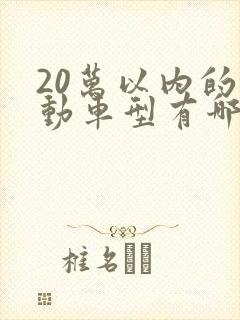 20萬以内的
動車型有哪
椎名